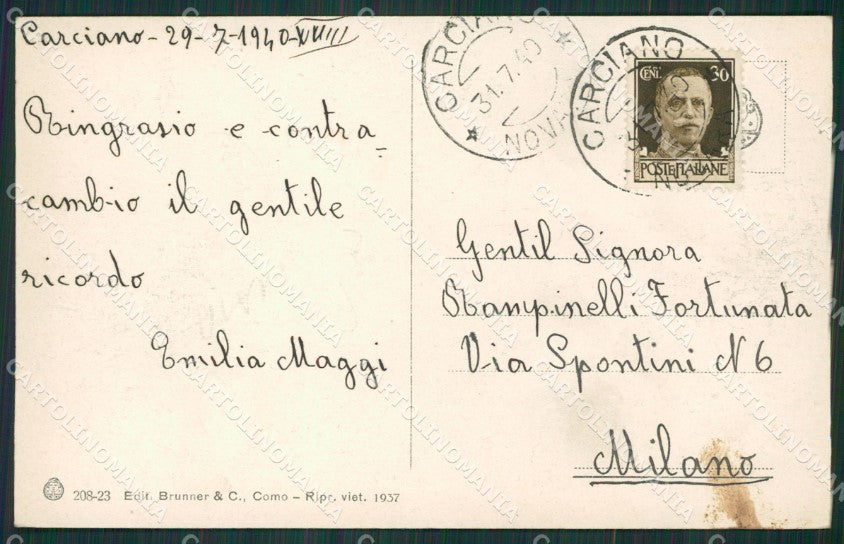 Carciano - 29 - 7 - 1940 - XVIII
Ringrasio e contra-
cambio il gentile
ricordo
Emilia Maggi
208-23 Edit. Brunner & C., Como – Ripr. viet. 1937
CARCIANO
31.7.40
NOVARA
CARCIANO
CENT. 30
POSTE ITALIANE
Gentil Signora
Rampinelli Fortunata
Via Spontini N 6
Milano
CARTOLINOMANIA